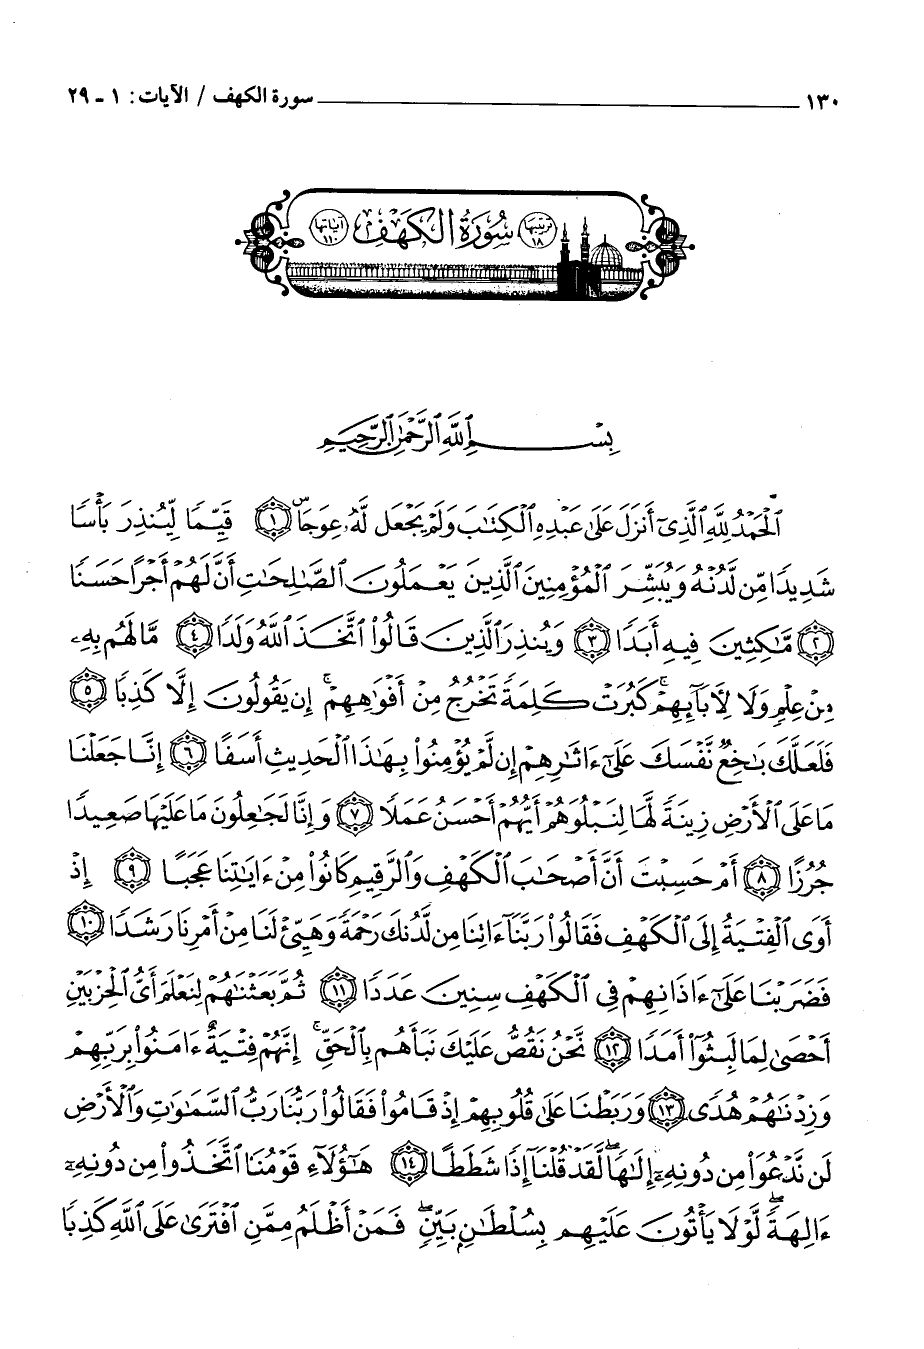 ١٣٠ سورة الكهف / الآيات: ١ - ٢٩
ترتيبها ١٨ سُورَةُ الكَهْف آياتها ١١٠
بِسْمِ ٱللَّهِ ٱلرَّحْمَٰنِ ٱلرَّحِيمِ
ٱلْحَمْدُ لِلَّهِ ٱلَّذِىٓ أَنزَلَ عَلَىٰ عَبْدِهِ ٱلْكِتَٰبَ وَلَمْ يَجْعَل لَّهُۥ عِوَجَاۜ ﴿١﴾ قَيِّمًا لِّيُنذِرَ بَأْسًا
شَدِيدًا مِّن لَّدُنْهُ وَيُبَشِّرَ ٱلْمُؤْمِنِينَ ٱلَّذِينَ يَعْمَلُونَ ٱلصَّٰلِحَٰتِ أَنَّ لَهُمْ أَجْرًا حَسَنًا
﴿٢﴾ مَّٰكِثِينَ فِيهِ أَبَدًا ﴿٣﴾ وَيُنذِرَ ٱلَّذِينَ قَالُوا۟ ٱتَّخَذَ ٱللَّهُ وَلَدًا ﴿٤﴾ مَّا لَهُم بِهِۦ
مِنْ عِلْمٍ وَلَا لِءَابَآئِهِمْ ۚ كَبُرَتْ كَلِمَةً تَخْرُجُ مِنْ أَفْوَٰهِهِمْ ۚ إِن يَقُولُونَ إِلَّا كَذِبًا ﴿٥﴾
فَلَعَلَّكَ بَٰخِعٌ نَّفْسَكَ عَلَىٰٓ ءَاثَٰرِهِمْ إِن لَّمْ يُؤْمِنُوا۟ بِهَٰذَا ٱلْحَدِيثِ أَسَفًا ﴿٦﴾ إِنَّا جَعَلْنَا
مَا عَلَى ٱلْأَرْضِ زِينَةً لَّهَا لِنَبْلُوَهُمْ أَيُّهُمْ أَحْسَنُ عَمَلًا ﴿٧﴾ وَإِنَّا لَجَٰعِلُونَ مَا عَلَيْهَا صَعِيدًا
جُرُزًا ﴿٨﴾ أَمْ حَسِبْتَ أَنَّ أَصْحَٰبَ ٱلْكَهْفِ وَٱلرَّقِيمِ كَانُوا۟ مِنْ ءَايَٰتِنَا عَجَبًا ﴿٩﴾ إِذْ
أَوَى ٱلْفِتْيَةُ إِلَى ٱلْكَهْفِ فَقَالُوا۟ رَبَّنَآ ءَاتِنَا مِن لَّدُنكَ رَحْمَةً وَهَيِّئْ لَنَا مِنْ أَمْرِنَا رَشَدًا ﴿١٠﴾
فَضَرَبْنَا عَلَىٰٓ ءَاذَانِهِمْ فِى ٱلْكَهْفِ سِنِينَ عَدَدًا ﴿١١﴾ ثُمَّ بَعَثْنَٰهُمْ لِنَعْلَمَ أَىُّ ٱلْحِزْبَيْنِ
أَحْصَىٰ لِمَا لَبِثُوٓا۟ أَمَدًا ﴿١٢﴾ نَّحْنُ نَقُصُّ عَلَيْكَ نَبَأَهُم بِٱلْحَقِّ ۚ إِنَّهُمْ فِتْيَةٌ ءَامَنُوا۟ بِرَبِّهِمْ
وَزِدْنَٰهُمْ هُدًى ﴿١٣﴾ وَرَبَطْنَا عَلَىٰ قُلُوبِهِمْ إِذْ قَامُوا۟ فَقَالُوا۟ رَبُّنَا رَبُّ ٱلسَّمَٰوَٰتِ وَٱلْأَرْضِ
لَن نَّدْعُوَا۟ مِن دُونِهِۦٓ إِلَٰهًا ۖ لَّقَدْ قُلْنَآ إِذًا شَطَطًا ﴿١٤﴾ هَٰٓؤُلَآءِ قَوْمُنَا ٱتَّخَذُوا۟ مِن دُونِهِۦٓ
ءَالِهَةً ۖ لَّوْلَا يَأْتُونَ عَلَيْهِم بِسُلْطَٰنٍۭ بَيِّنٍ ۖ فَمَنْ أَظْلَمُ مِمَّنِ ٱفْتَرَىٰ عَلَى ٱللَّهِ كَذِبًا